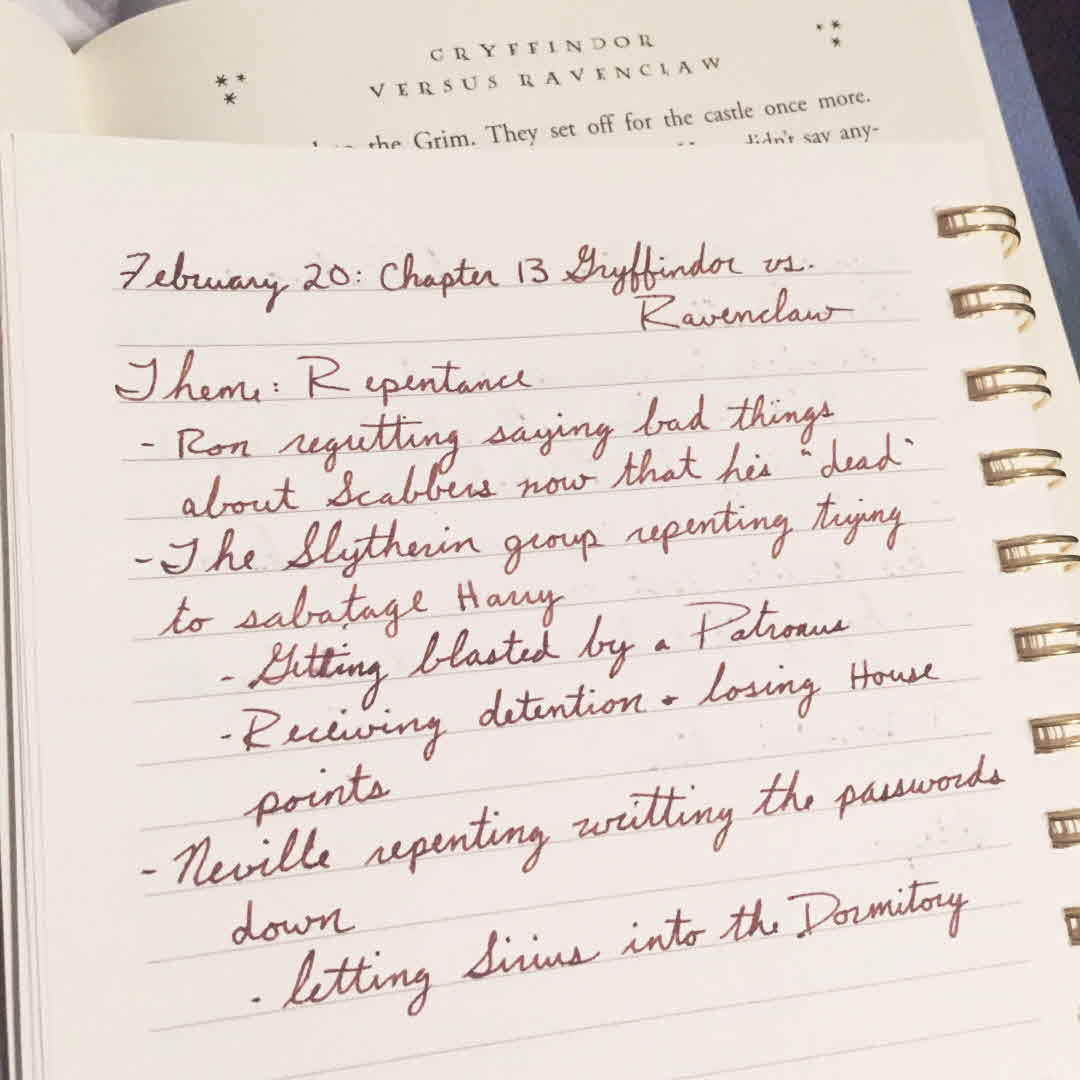 GRYFFINDOR
VERSUS RAVENCLAW
the Grim. They set off for the castle once more.
didn't say any-
February 20: Chapter 13 Gryffindor vs.
Ravenclaw
Theme: Repentance
- Ron regretting saying bad things
about Scabbers now that he's "dead"
- The Slytherin group repenting trying
to sabatage Harry
- Getting blasted by a Patronus
- Receiving detention + losing House
points
- Neville repenting writting the passwords
down
- letting Sirius into the Dormitory